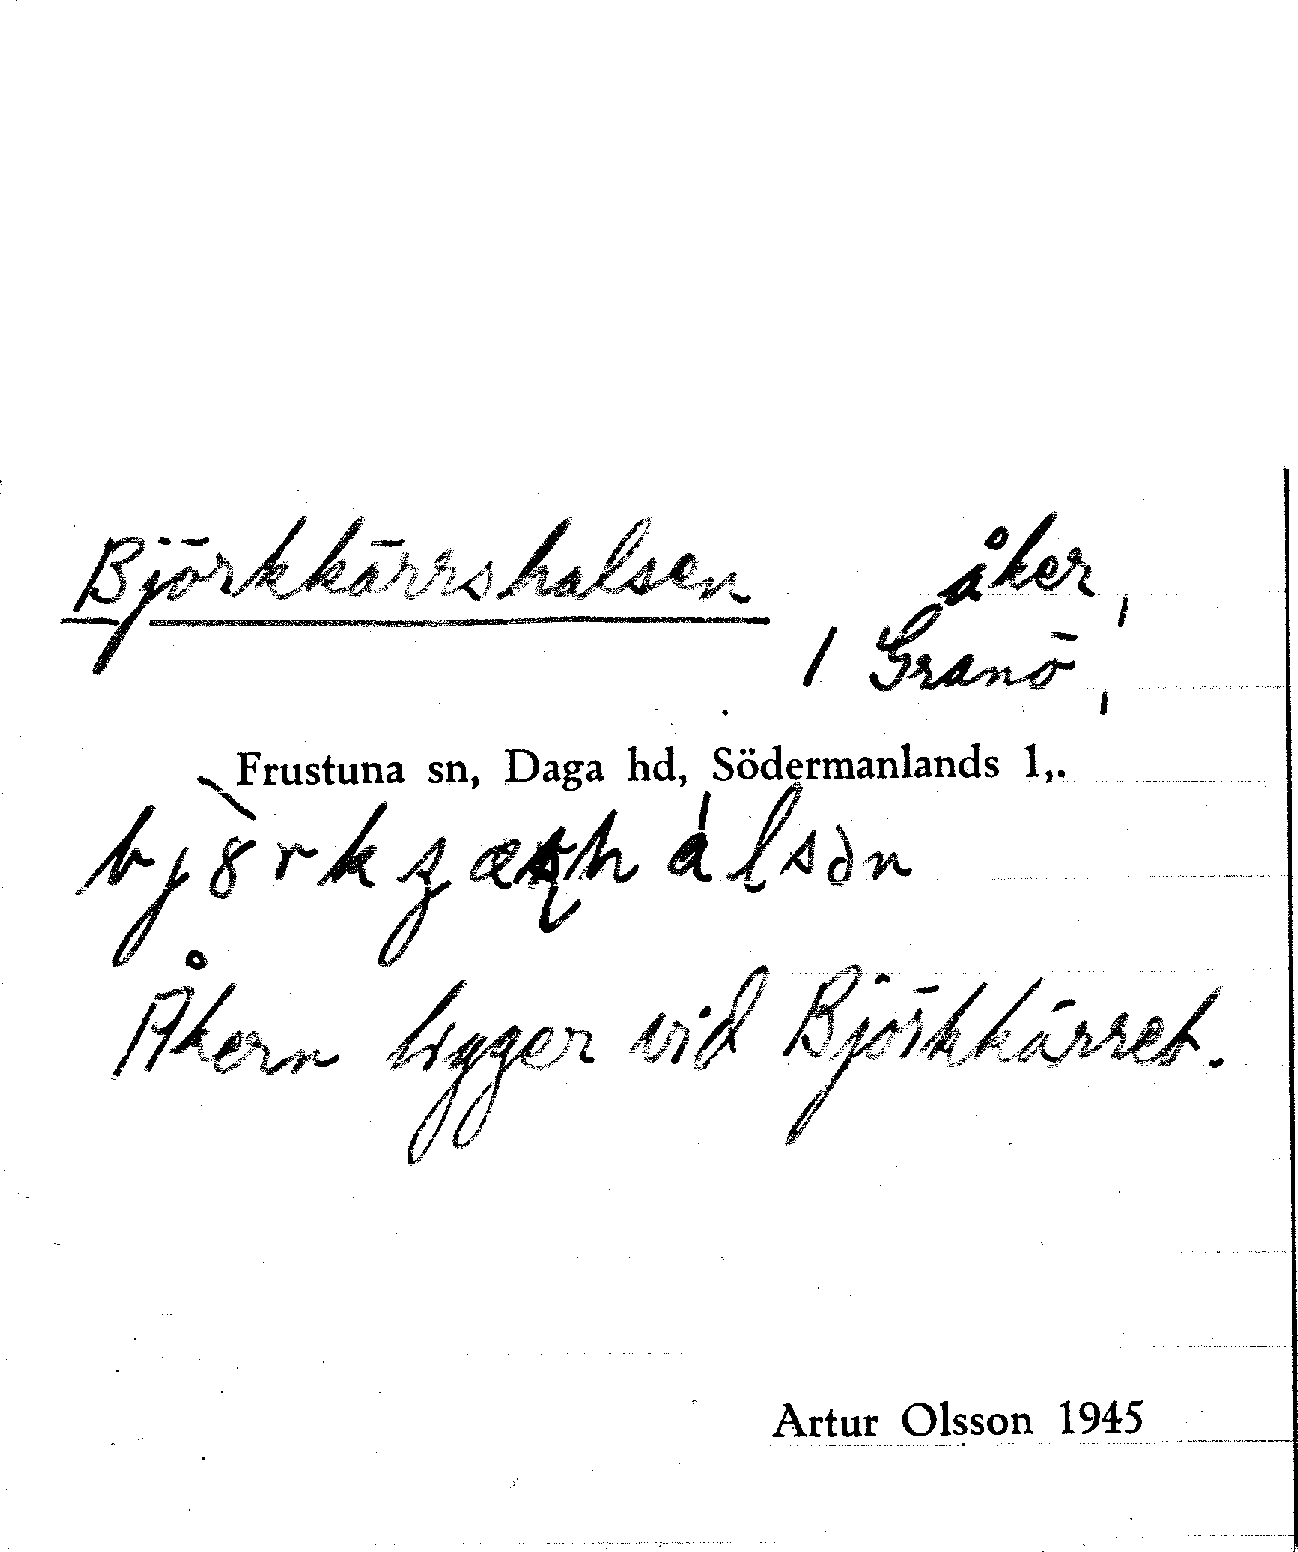 Björkkärrshalsen åker,
/ Granö,
Frustuna sn, Daga hd, Södermanlands l,.
Åkern ligger vid Björkkärret.
Artur Olsson 1945